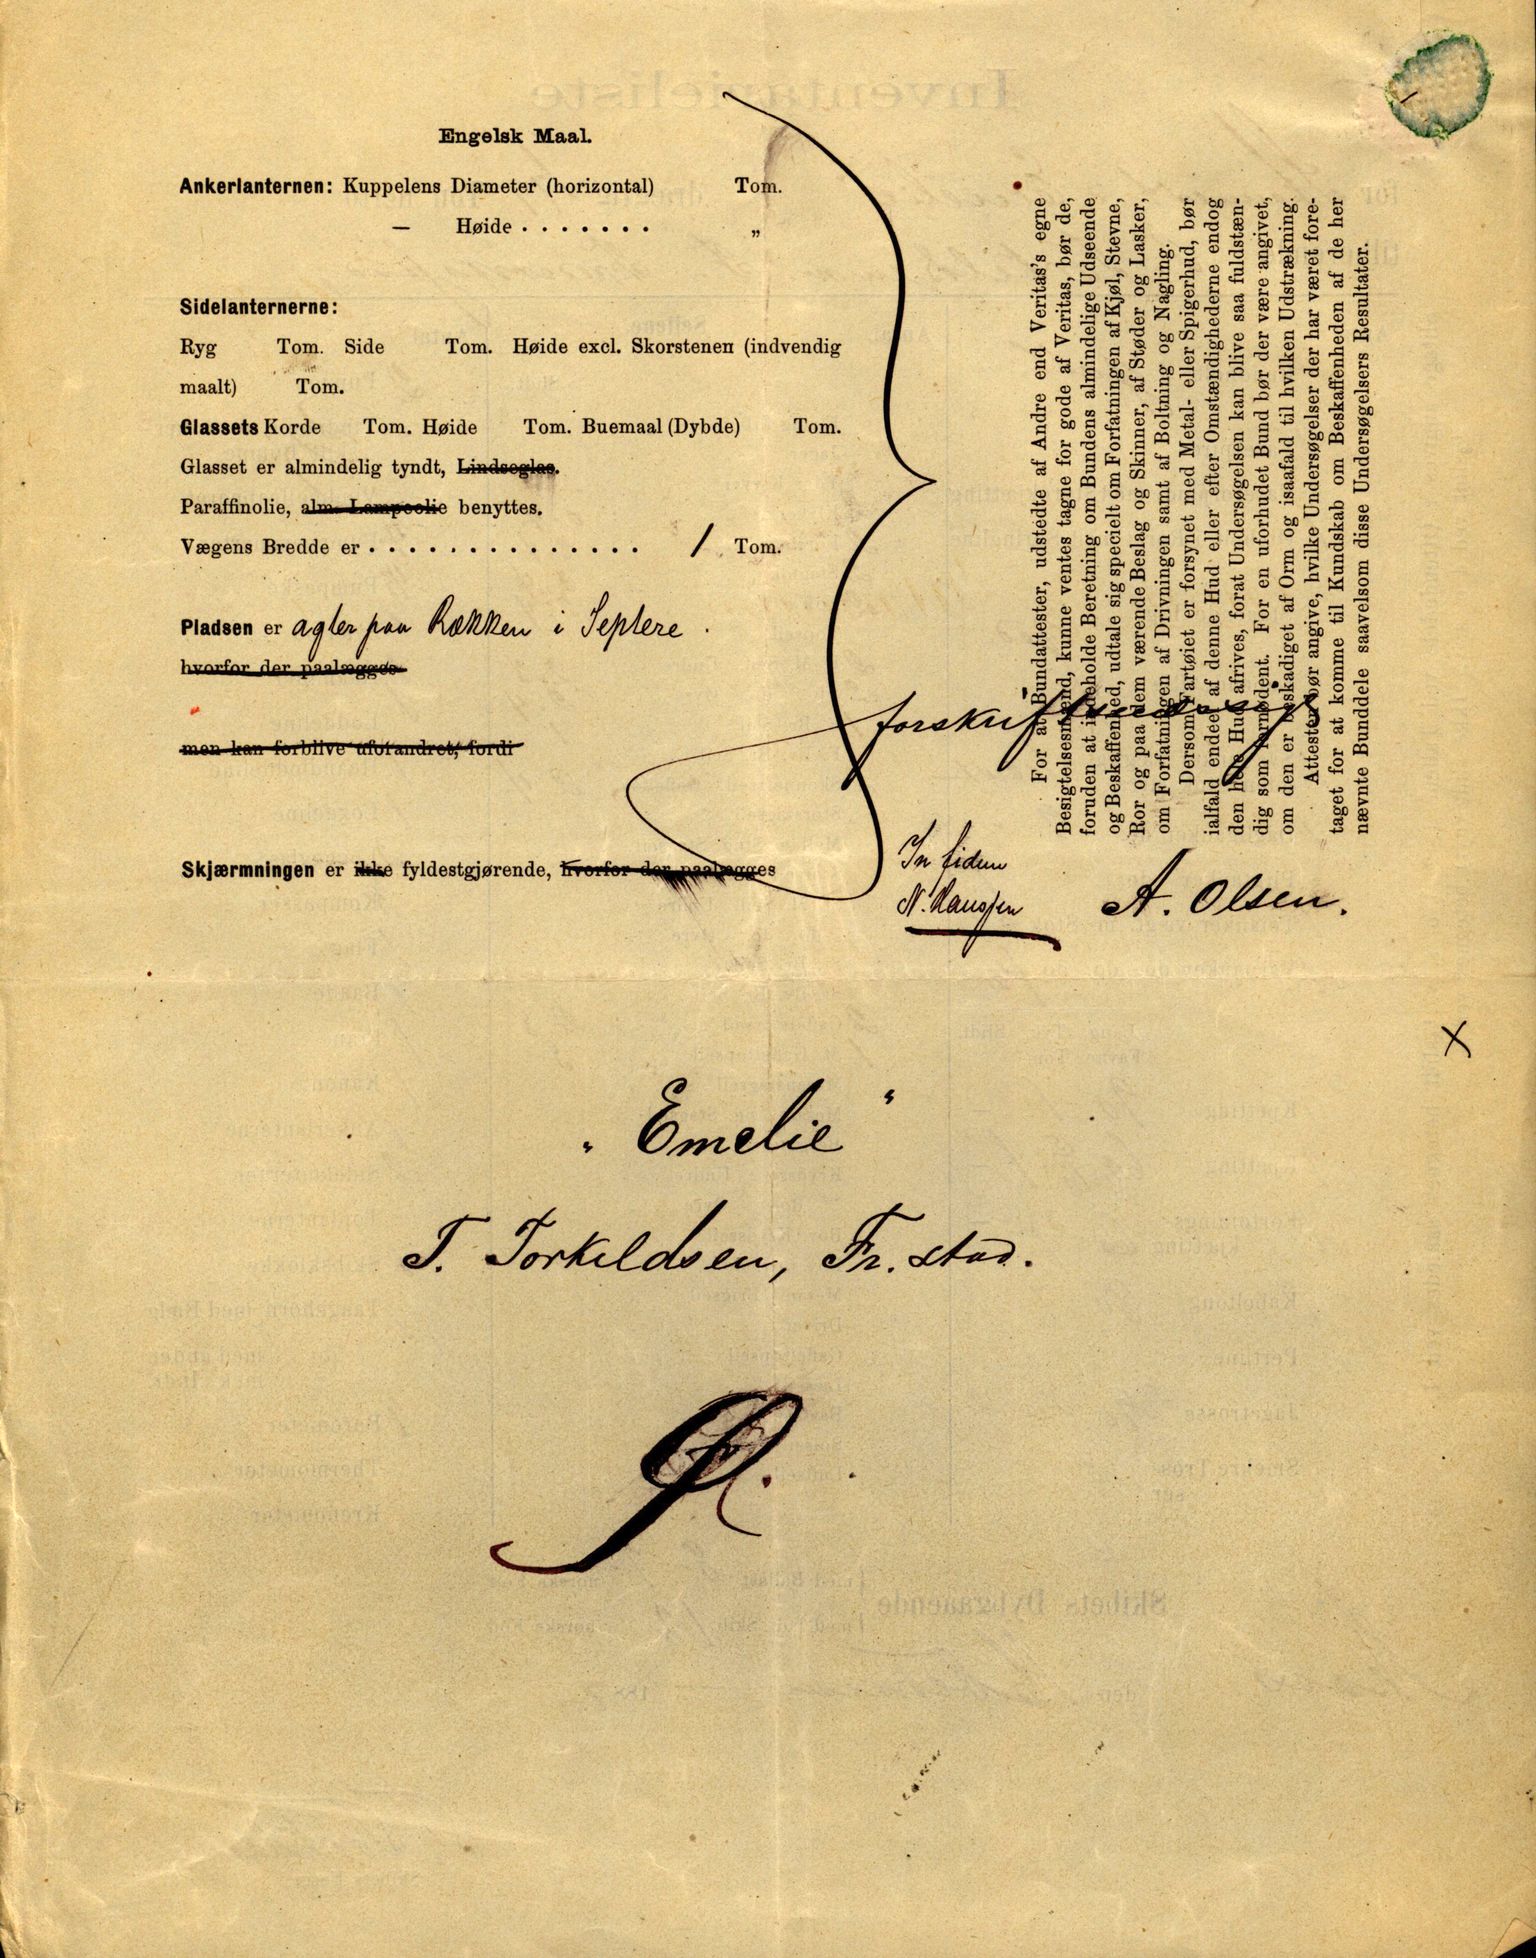 Engelsk Maal.
Ankerlanternen: Kuppelens Diameter (horizontal) Tom.
— Høide . . . . . . . „
Sidelanternerne:
Ryg Tom. Side Tom. Høide excl. Skorstenen (indvendig
maalt) Tom.
Glassets Korde Tom. Høide Tom. Buemaal (Dybde) Tom.
Glasset er almindelig tyndt, Lindseglas.
Paraffinolie, alm. Lampeolie benyttes.
Vægens Bredde er . . . . . . . . . . . . . . 1 Tom.
Pladsen er agter paa Rækken i Septere.
hvorfor der paalægges
men kan forblive uforandret, fordi
Skjærmningen er ikke fyldestgjørende, hvorfor der paalægges
forskriftmæssig
In fidem
N. Hanssen
A. Olsen.
For at Bundattester, udstedte af Andre end Veritas's egne
Besigtelsesmænd, kunne ventes tagne for gode af Veritas, bør de,
foruden at indeholde Beretning om Bundens almindelige Udseende
og Beskaffenhed, udtale sig specielt om Forfatningen af Kjøl, Stevne,
Ror og paa dem værende Beslag og Skinner, af Støder og Lasker,
om Forfatningen af Drivningen samt af Boltning og Nagling.
Dersom Fartøiet er forsynet med Metal- eller Spigerhud, bør
ialfald endel af denne Hud eller efter Omstændighederne endog
den hele Hud afrives, forat Undersøgelsen kan blive saa fuldstæn-
dig som fornødent. For en uforhudet Bund bør der være angivet,
om den er beskadiget af Orm og isaafald til hvilken Udstrækning.
Attesten bør angive, hvilke Undersøgelser der har været fore-
taget for at komme til Kundskab om Beskaffenheden af de her
nævnte Bunddele saavelsom disse Undersøgelsers Resultater.
„Emelie"
T. Torkildsen, Fr.stad.